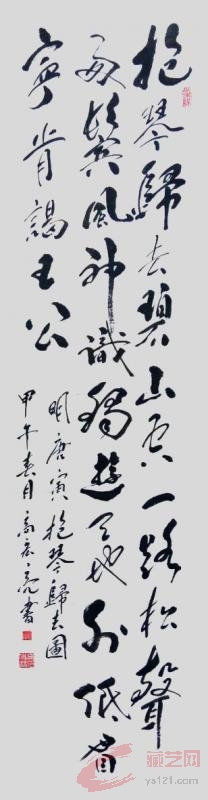 抱琴歸去碧山空一路松聲
兩鬢風神識獨遊天地外低眉
寧肯謁王公
明唐寅抱琴歸去圖
甲午春月書
藏艺网
ya121.com